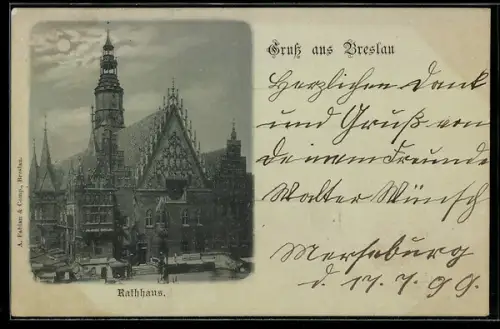 Gruß aus Breslau
Herzlichen Dank
und Gruß von
Deinem Freunde
Walter Wünsch
Merseburg
d. 17. 7. 99.
A. Fabian & Comp., Breslau.
Rathhaus.